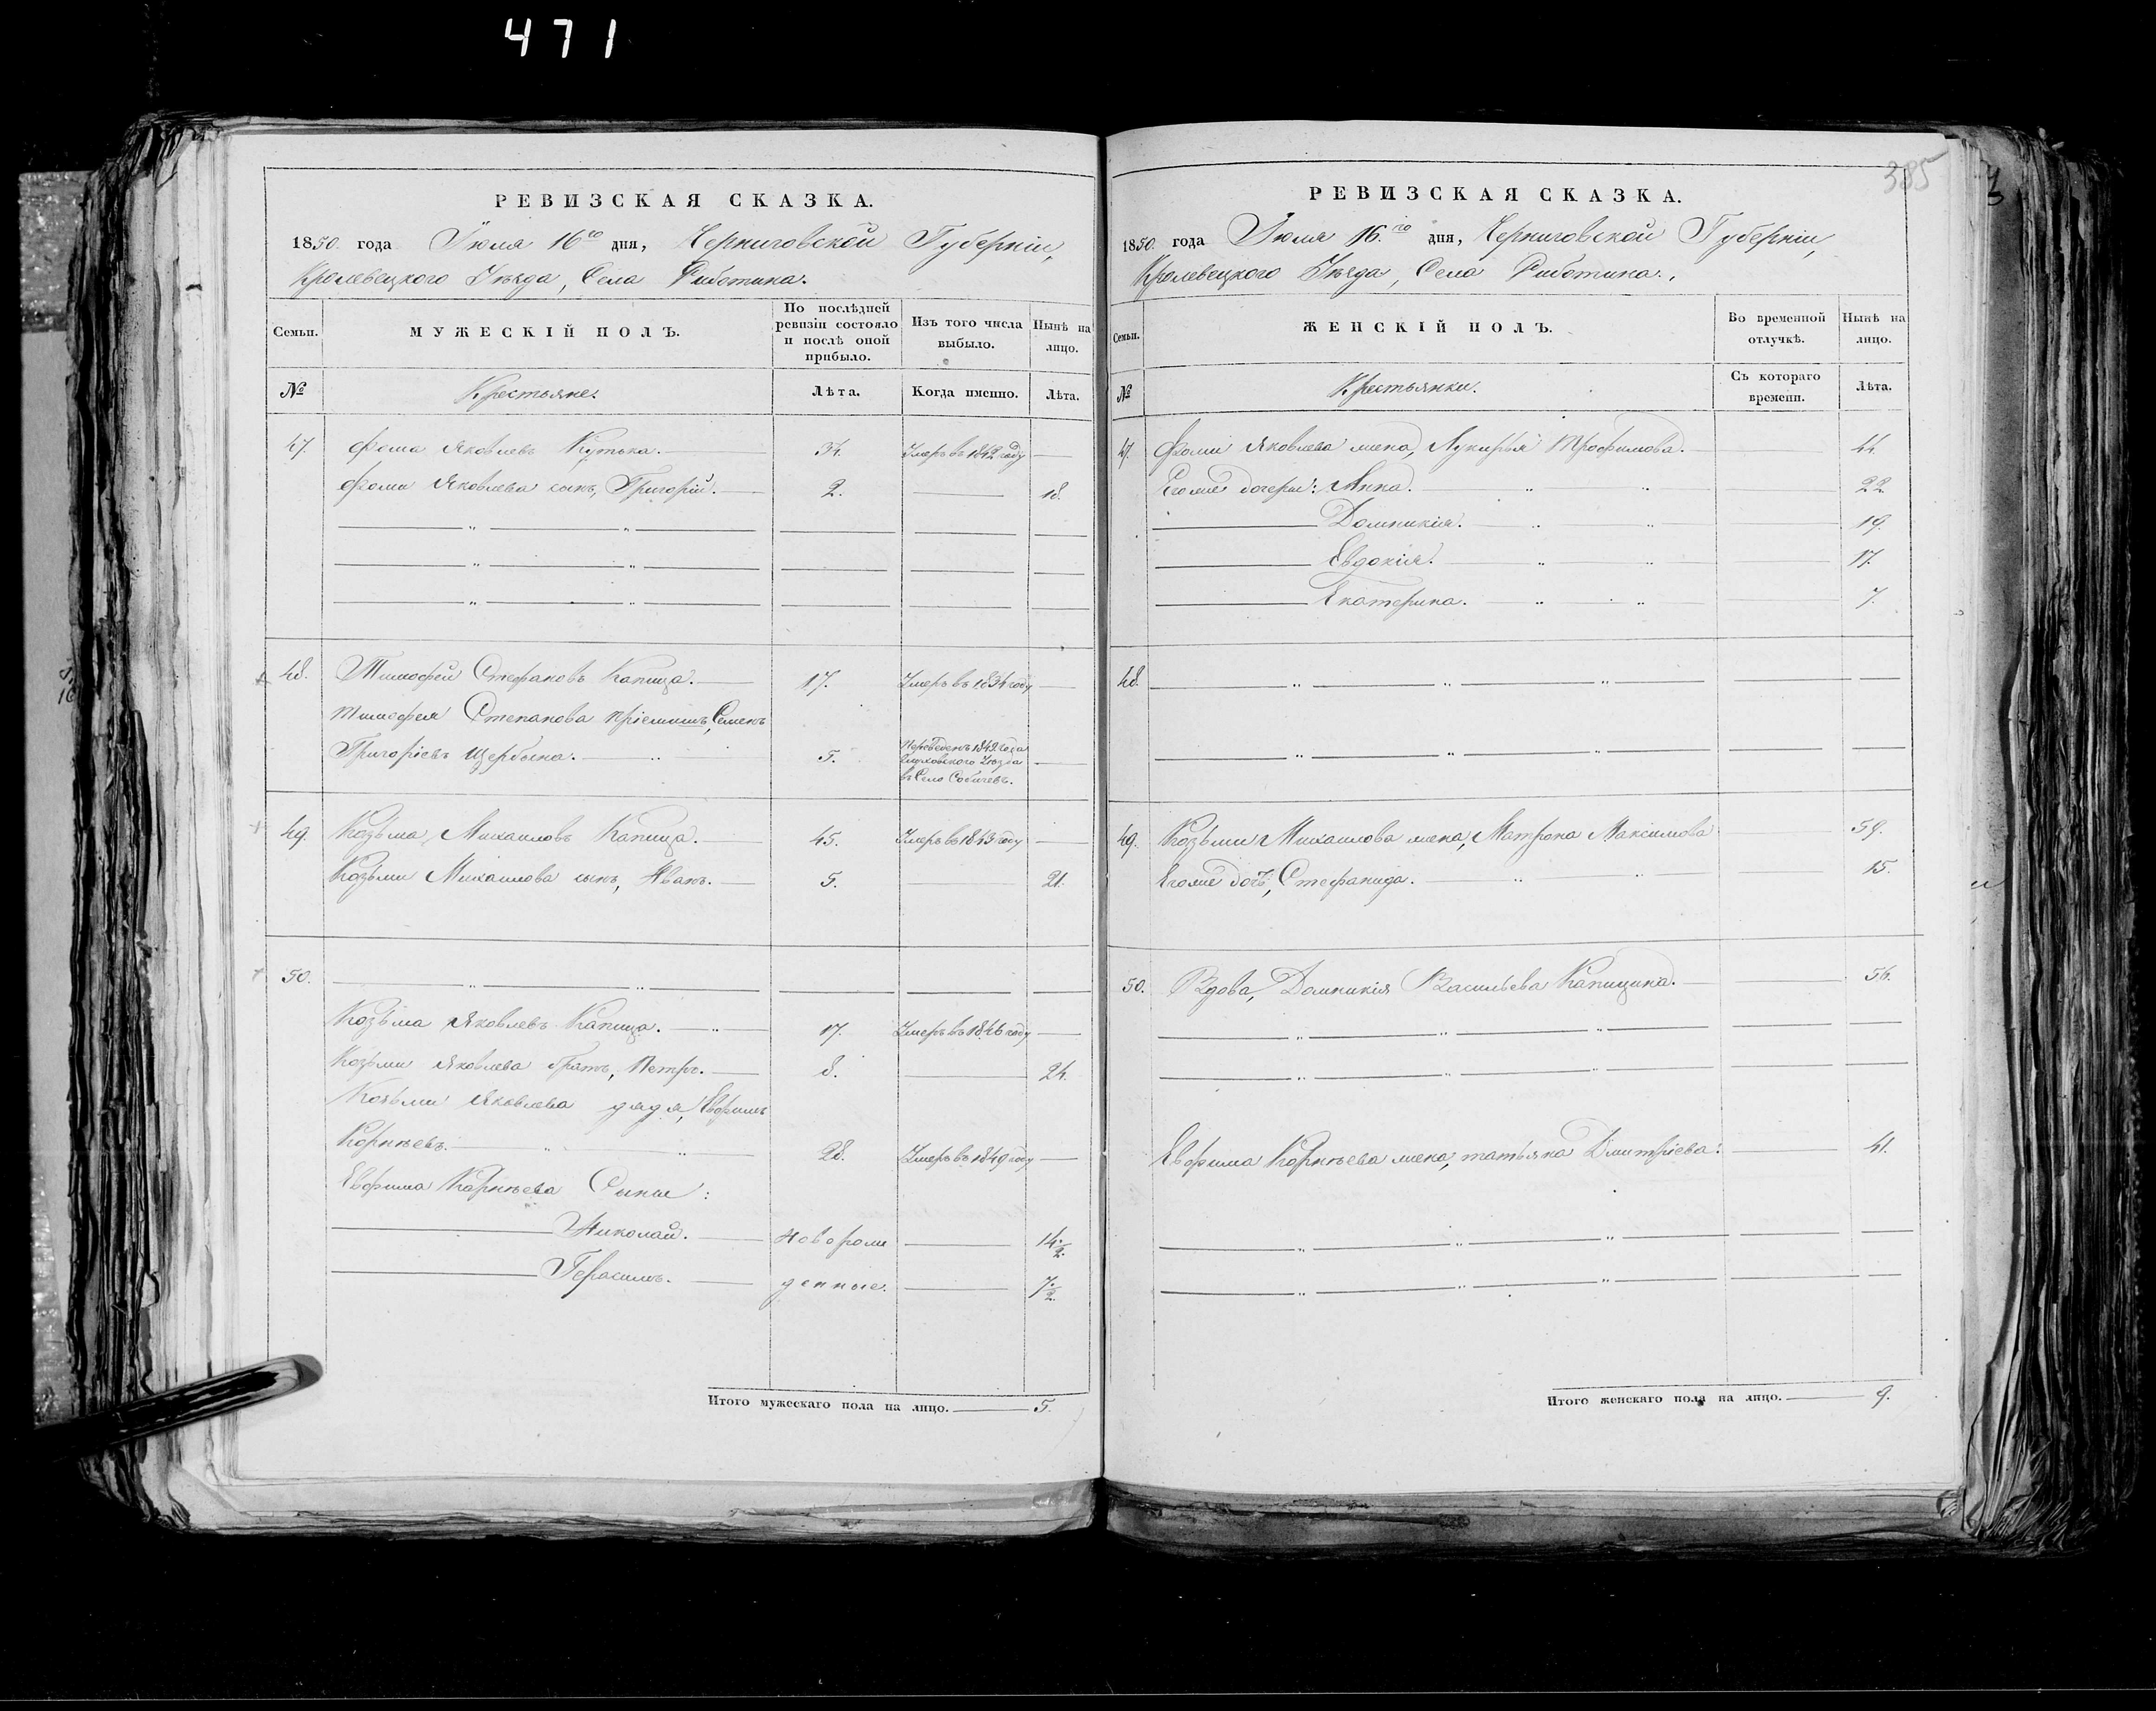 471
РЕВИЗСКАЯ СКАЗКА.
1850. года Іюля 16го дня, Черниговской Губерніи,
Кролевецкого Уѣзда, Села Риботина.
Семьи.
МУЖЕСКІЙ ПОЛЪ.
По послѣдней ревизіи состояло и послѣ оной прибыло.
Изъ того числа выбыло.
Нынѣ на лицо.
№ Крестьяне. Лѣта. Когда именно. Лѣта.
47. Фома Яковлевъ Кутька. 34. Умеръ въ 1842 году
Фомы Яковлева сынъ, Григорій. 2. 18.
48. Тимофей Стефановъ Капица. 17. Умеръ въ 1834 году
Тимофея Степанова пріемышъ, Семенъ
Григоріевъ Щербина. 5. Переведенъ 1849. года
Глуховского Уѣзда
въ Село Собичевъ.
49. Козьма Михаиловъ Капица. 45. Умеръ въ 1843 году
Козьмы Михаилова сынъ, Иванъ. 5. 21.
50.
Козьма Яковлевъ Капица. 17. Умеръ въ 1846 году
Козьмы Яковлева братъ, Петръ. 8. 24.
Козьмы Яковлева дядя, Евфимъ
Корнѣевъ. 28. Умеръ въ 1849 году
Евфима Корнѣева Сыны:
Николай. Новорож 14.½.
Герасимъ. денные. 7.½.
Итого мужескаго пола на лицо. 5.
385
РЕВИЗСКАЯ СКАЗКА.
1850. года Іюля 16.го дня, Черниговской Губерніи,
Кролевецкого Уѣзда, Села Риботина.
Семьи.
ЖЕНСКІЙ ПОЛЪ.
Во временной отлучкѣ.
Нынѣ на лицо.
№ Крестьянки. Съ котораго времени. Лѣта.
47. Фомы Яковлева жена, Лукирья Трофимова. 44.
Егоже дочери: Анна. 22
Домникія. 19.
Евдокія. 17.
Екатерина. 7.
48.
49. Козьмы Михаилова жена, Матрона Максимова 59.
Егоже дочь, Стефанида. 15.
50. Вдова, Домникія Васильева Капицина. 56.
Евфима Корнѣева жена, татьяна Дмитріева: 41.
Итого женскаго пола на лицо. 9.